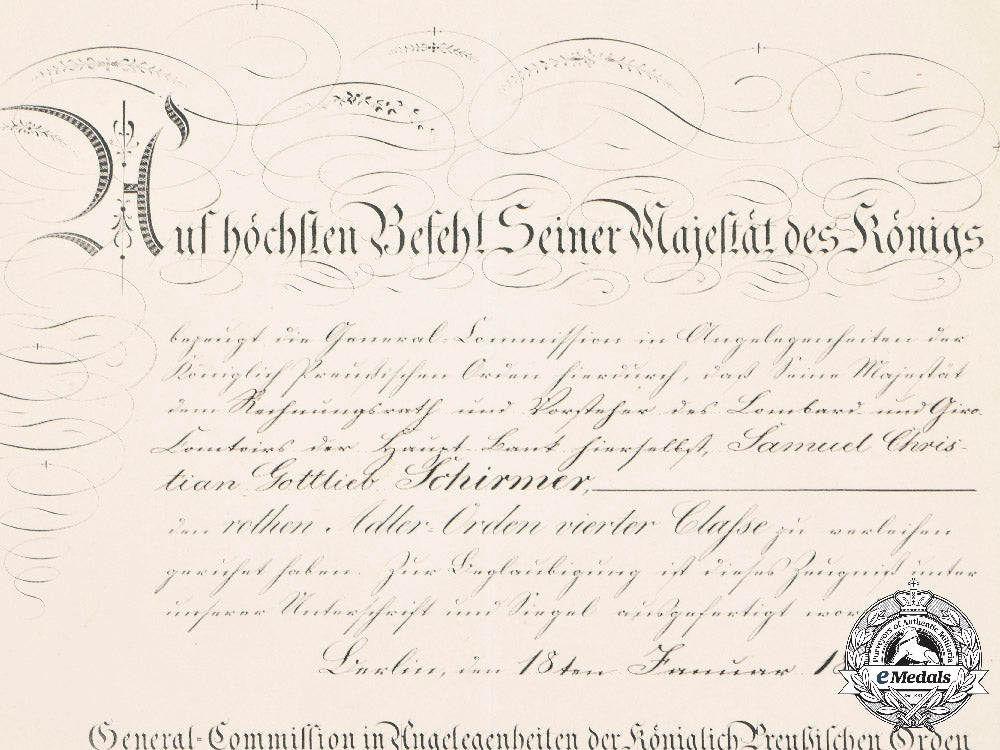 Auf höchsten Befehl Seiner Majestät des Königs
bezeugt die General-Commission in Angelegenheiten der
Königlich Preußischen Orden hierdurch, daß Seine Majestät
dem Rechnungsrath und Vorsteher des Lombard- und Giro-
Comtoirs der Haupt-Bank hierselbst, Samuel Chris-
tian Gottlieb Schirmer,
den rothen Adler-Orden vierter Classe zu verleihen
geruhet haben. Zur Beglaubigung ist dieses Zeugniß unter
unserer Unterschrift und Siegel ausgefertigt
Berlin, den 18ten Januar
General-Commission in Angelegenheiten der Königlich Preußischen Orden
Purveyors of Authentic Militaria
eMedals